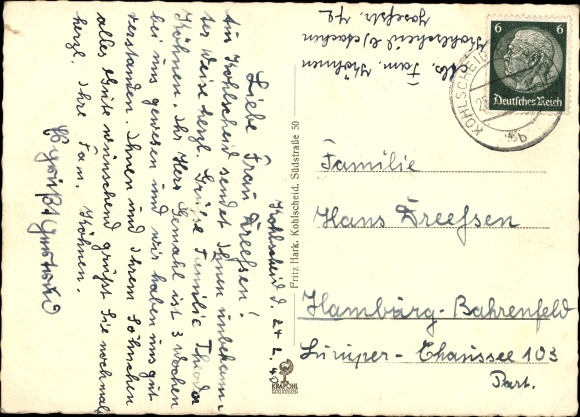 Kohlscheid d. 24.2.40
Liebe Frau Dreessen!
Aus Kohlscheid sendet Ihnen unbekann-
ter Weise herzl. Grüße Familie Theodor
Köhnen. Ihr Herr Gemahl ist 3 Wochen
bei uns gewesen und wir haben uns gut
verstanden. Ihnen und Ihrem Söhnchen
alles Gute wünschend grüßt Sie nochmals
herzl. Ihre Fam. Köhnen.
Abs. Fam. Köhnen
Kohlscheid b/Aachen
Josefstr.
Fritz Hark. Kohlscheid. Südstraße 50
KRAPOHL
6 6
Deutsches Reich
KOHLSCHEID
b
Familie
Hans Dreessen
Hamburg-Bahrenfeld
Luruper-Chaussee 103
Part.